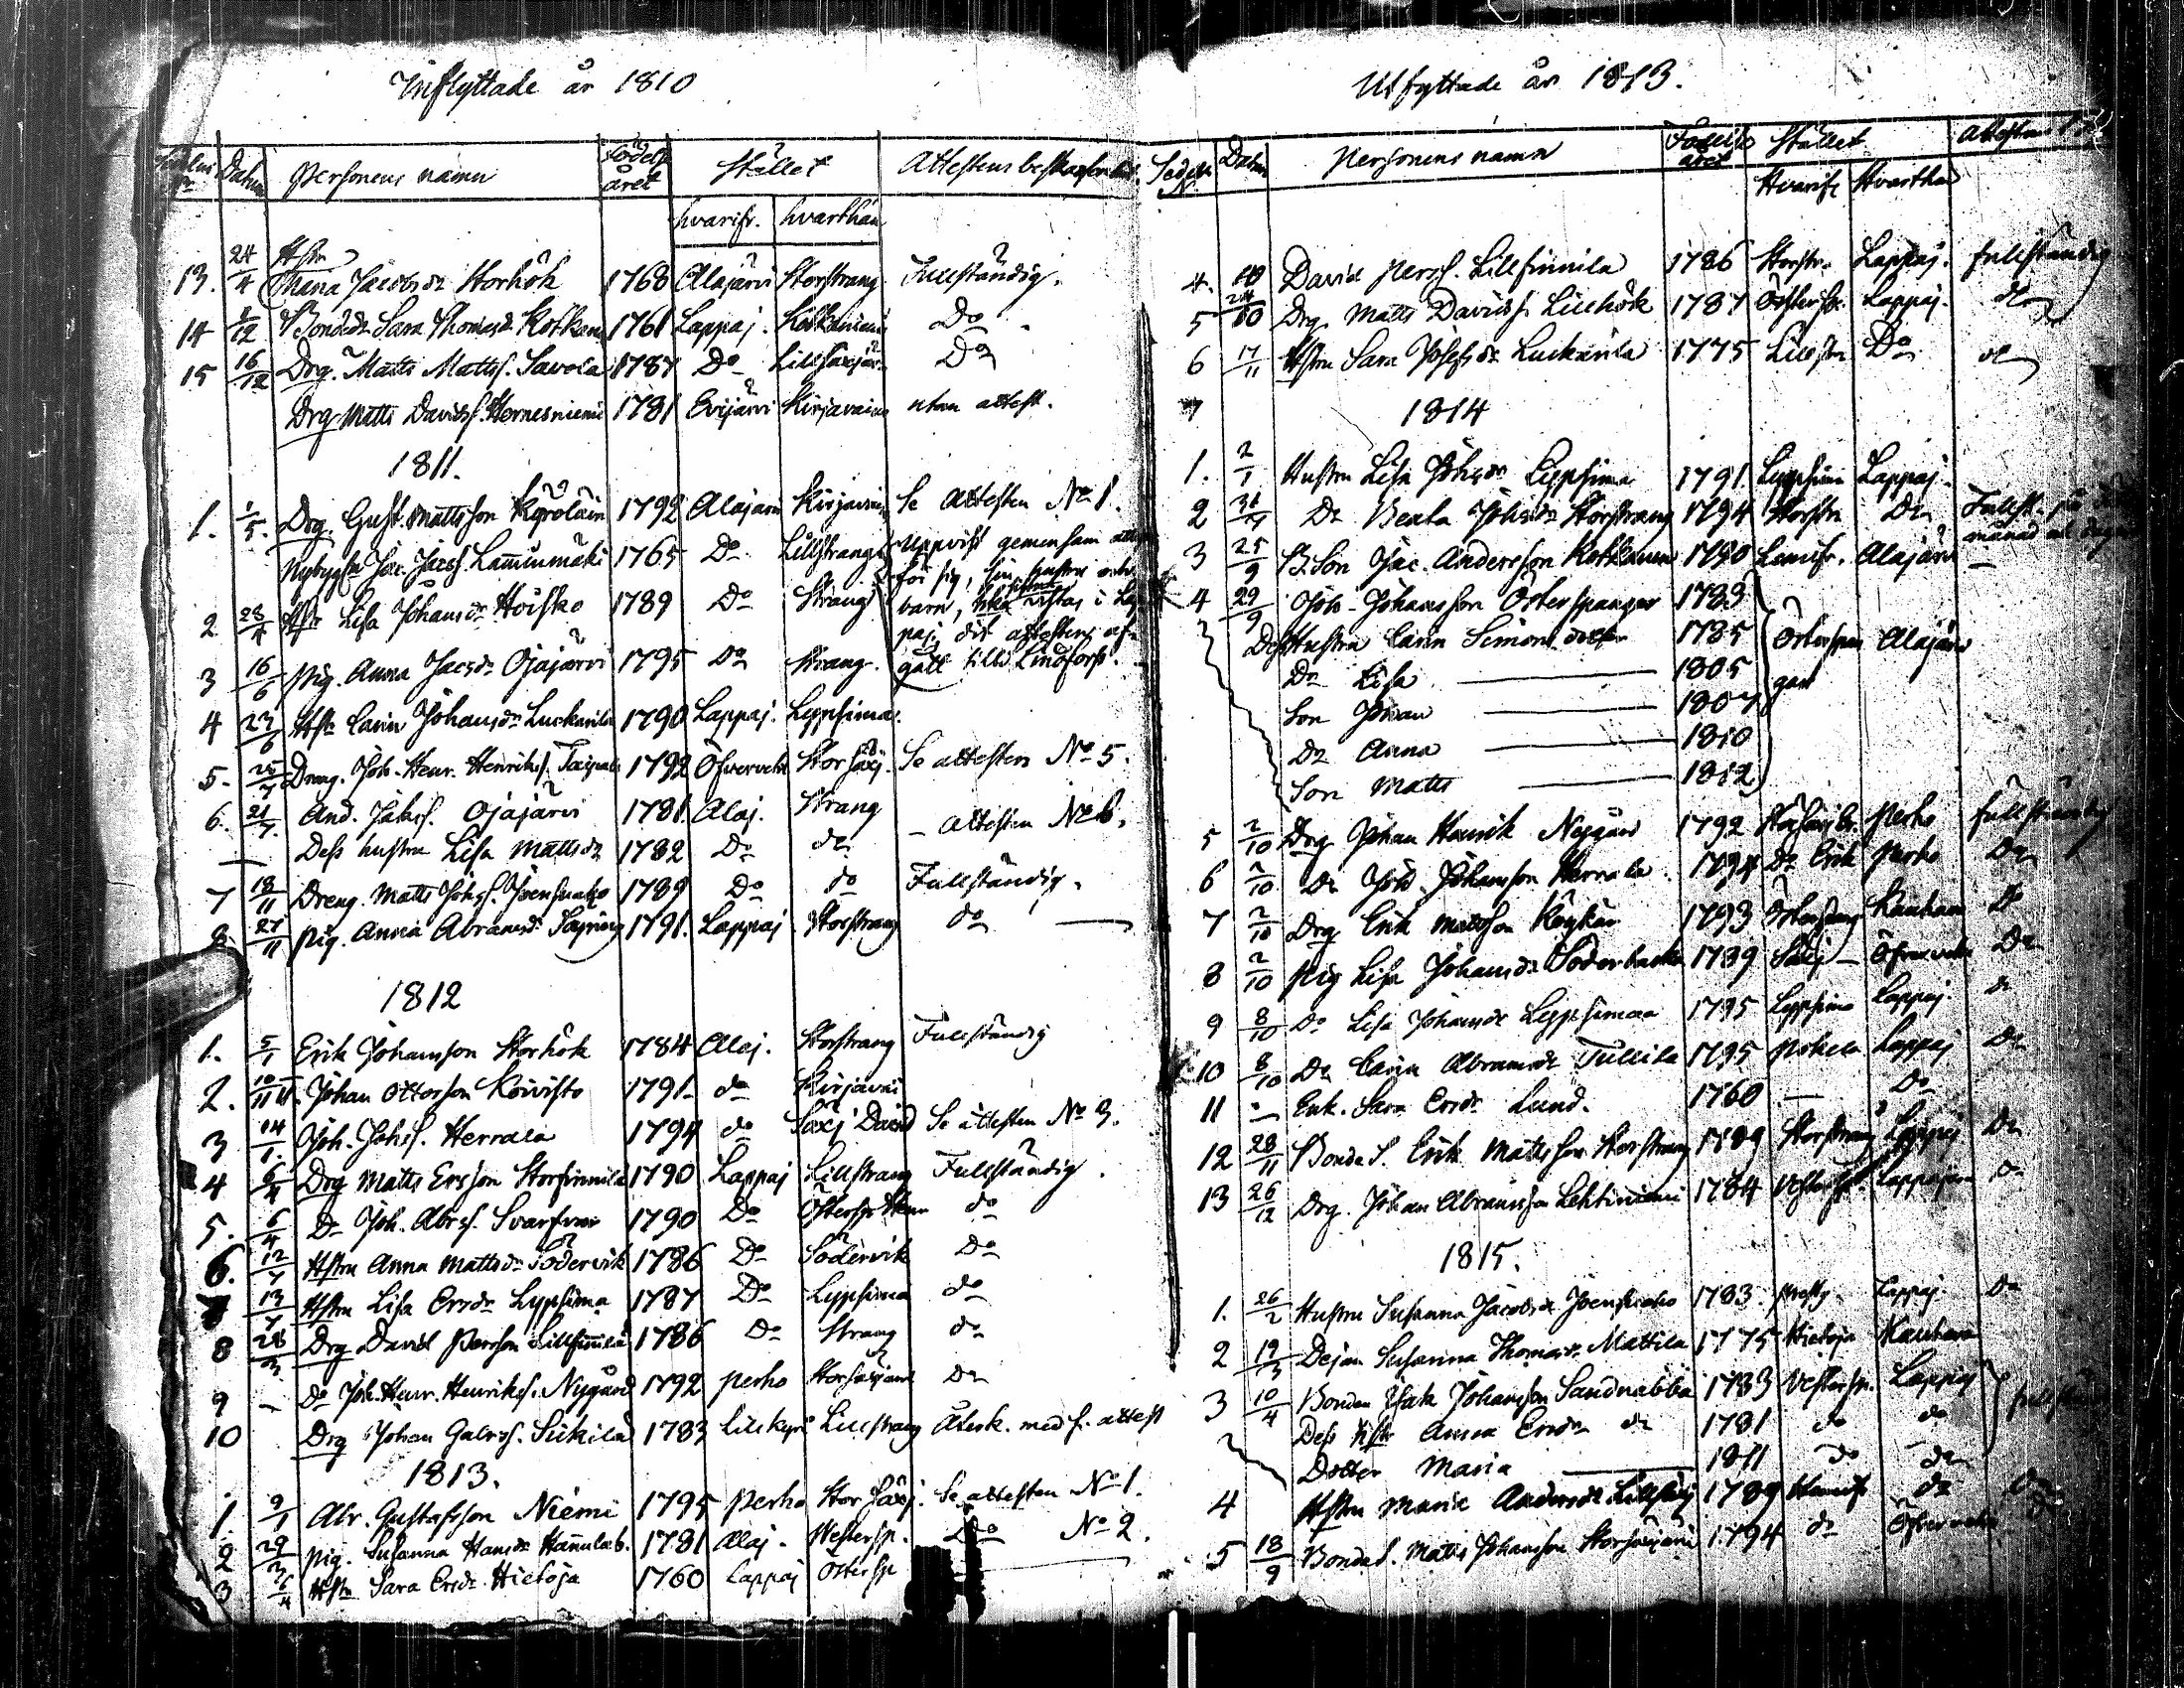 Inflyttade år 1810
Datum Personens namn Födelse året Stället Attestens beskaffenhet
hvarifr. hvarthän
13. 24/4 Hstr Maria Jacobsdr Storhök 1768 Alajärvi Storstrang Fullständig.
14 /12 Bondedr Sara Thomasdr 1761 Lappaj. Do
15 16/12 Drg. Matts Mattss. Savola 1787 Do Do
Drg Matts Davidss. Hernesniemi 1781 Evijärvi Kirjavain utan attest.
1811.
1. 1/5. Drg Gust. Mattsson 1792 Alajärvi Se attesten No 1.
Nybygg. Jac. Jacss. Lamminmäki 1765 Do Lillstrang Uppvist gemensam
för sig, sin hustru och
2 28/4 Hstr Lisa Johansdr Hoisko 1789 Do Strang barn, vistas i Lap
paj. dit attesten af
3 16/6 Pig. Anna Jacsdr Ojajärvi 1795 Do Strang. gått till Lindfors.
4 23/6 Hstr Carin Johansdr Luckarila 1790 Lappaj. Lyppsima.
5. 25/7 Dreng. Joh. Henr. Henrikss. 1792 Öfvervetil Storsäxj. Se attesten No 5.
6. 21/7. And. Jakss. Ojajärvi 1781 Alaj. Strang - attesten No 6.
— Dess hustru Lisa Mattsdr 1782 Do do
7 18/11 Dreng. Matts Johss. Joensuuaho 1789 Do do Fullständig.
8. 27/11 Pig. Anna Abramsdr 1791. Lappaj Storstrang do —
1812
1. 5/1 Erik Johansson Storhök 1784 Alaj. Storstrang Fullständig
2. 10/11 Johan Ottosson Koivisto 1791. do Kirjavai
3 14/1. Joh. Johss. Herrala 1794 do Säxj David Se attesten No 3.
4 6/4 Drg Matts Ersson Storfinnila 1790 Lappaj Lillstrang Fullständig.
5. 6/4 Do Joh. Abrs. Svartsven 1790 Do do
6. 12/7 Hstru Anna Mattsdr Södervik 1786 Do Södervik Do
7 13/7 Hstru Lisa Ersdr Lyppsima 1787 Do Lyppsima do
8 28/ Drg David Persson Lillfinnila 1786 Do Strang do
9 — Do Joh. Henr. Henrikss. Nygård 1792 Perho Storsäxjärvi Do
10 Drg Johan Gabrss. Siikila 1783 Lillkyro Lillstrang Återk. med s. attest
1813.
1 9/1 Abr. Gustafsson Niemi 1795 Perho Stor Säxj. Se attesten No 1.
2 29/3 Pig. Susanna Hansdr 1781 Alaj. Vestersp. Do No 2.
3 /4 Hstr Sara Ersdr Hietoja 1760 Lappaj Östersp
Utflyttade år 1813.
Sedeln Datum Personens namn Födelse året Stället Attestens
Hvarifr Hvarthän
4. David Perss. Lillfinnila 1786 Storstr. Lappaj. fullständig
5 24/10 Drg. Matts Davidss. Lillhök 1787 Östersp. Lappaj. do
6 17/11 Hstru Sara Josefsdr Luckarila 1775 Lillstr Do do
7 1814
1. 2/1 Hustru Lisa Johsdr Lyppsima 1791. Lyppsima Lappaj.
2 31/ Do Beata Johsdr Storstrang 1794 Storstr Do Fullst. på
månad och dagen
3 25/9 B. Son Jac. Andersson Kotkaniemi 1790 Alajärvi —
4 29/9 Joh. Johansson Österspangar 1783
Dess Hustru Carin Simonsdotter 1785 Österspan Alajärvi
Dr Lisa — 1805 gar
Son Johan — 1807
Dr Anna — 1810
Son Matts — 1812
5 2/10 Drg Johan Henrik Nygård 1792 Perho fullständig
6 2/10 Do Joh. Johansson Herrala 1794 Do Erik Perho Do
7 2/10 Drg Erik Mattsson 1793 Kauhava Do
8 2/10 Pig Lisa Johansdr Söderbacka 1789 Säxj — Öfvervetil Do
9 8/10 Do Lisa Johansdr Lyppsimaa 1795 Lyppsima Lappaj. do
10 8/10 Do Carin Abramsdr Tullila 1795 Pokela Lappaj Do
11 — Enk. Sara Ersdr Lund. 1760 — Do
12 28/11 Bonde S. Erik Mattsson Storstrang 1789 Storstrang Lappaj Do
13 26/12 Drg. Johan Abramsson Lehtiniemi 1784 Vestersp. Lappajärvi do
1815.
1. 26/2 Hustru Susanna Jacobsdr Joensuuaho 1783. Lappaj. Do
2 19/3 Pejan Susanna Thomasdr Mattila 1775 Hietoja Kauhava
3 10/4 Bonden Isak Johansson Sandnabba 1783 Vestersp. Lappaj
Dess Hstr Anna Ersdr do 1781 do do
Dotter Maria — 1811 do do
4 Hstru Maria Andersdr 1789 do
5 18/9 Bondes. Matts Johansson Storsäxjärvi 1794 do Öfvervetil